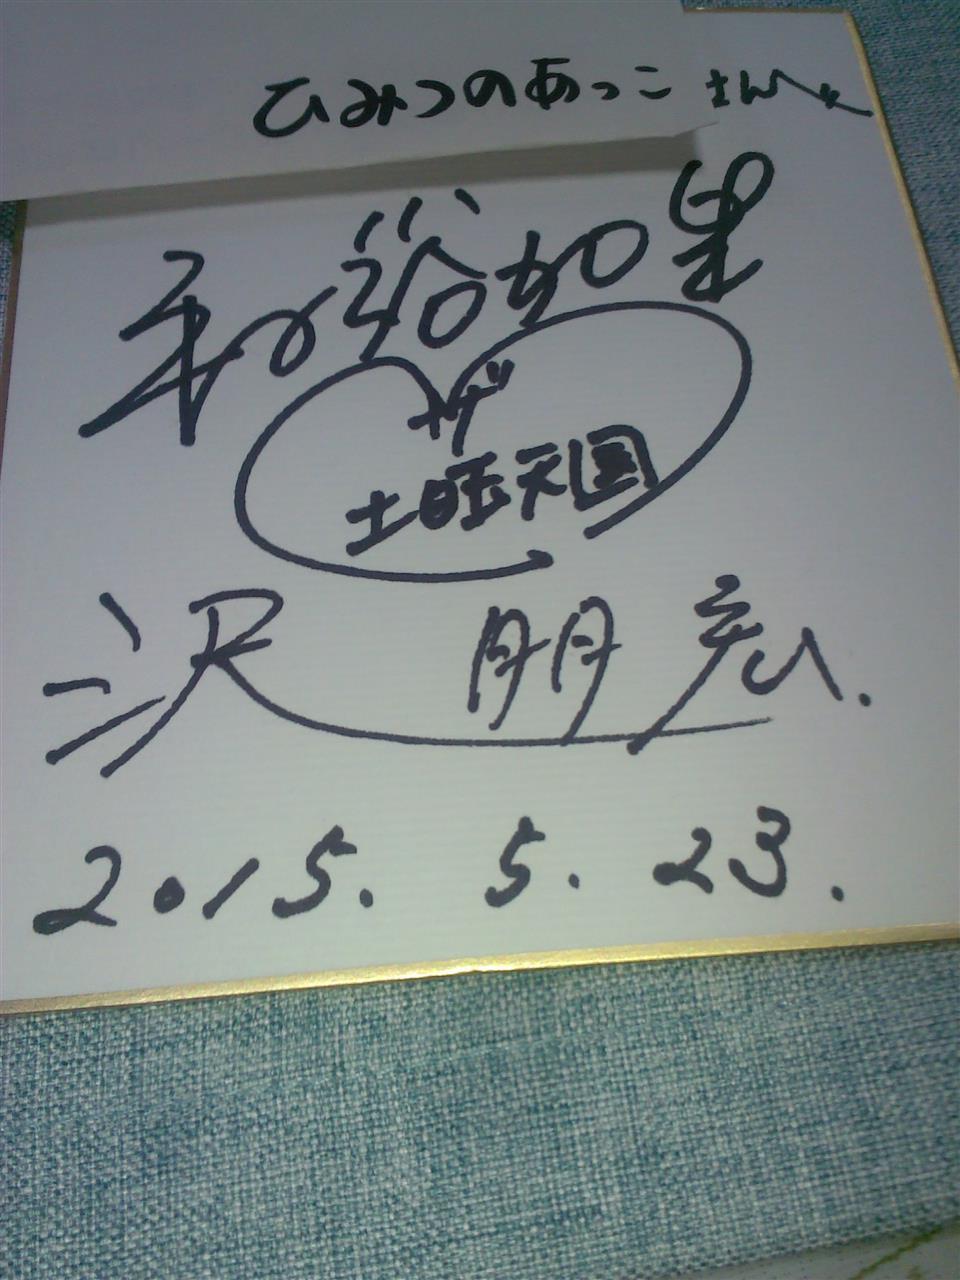 ひみつのあっこ さんへ
平の裕加里
ザ
土曜天国
沢 朋宏.
2015. 5. 23.